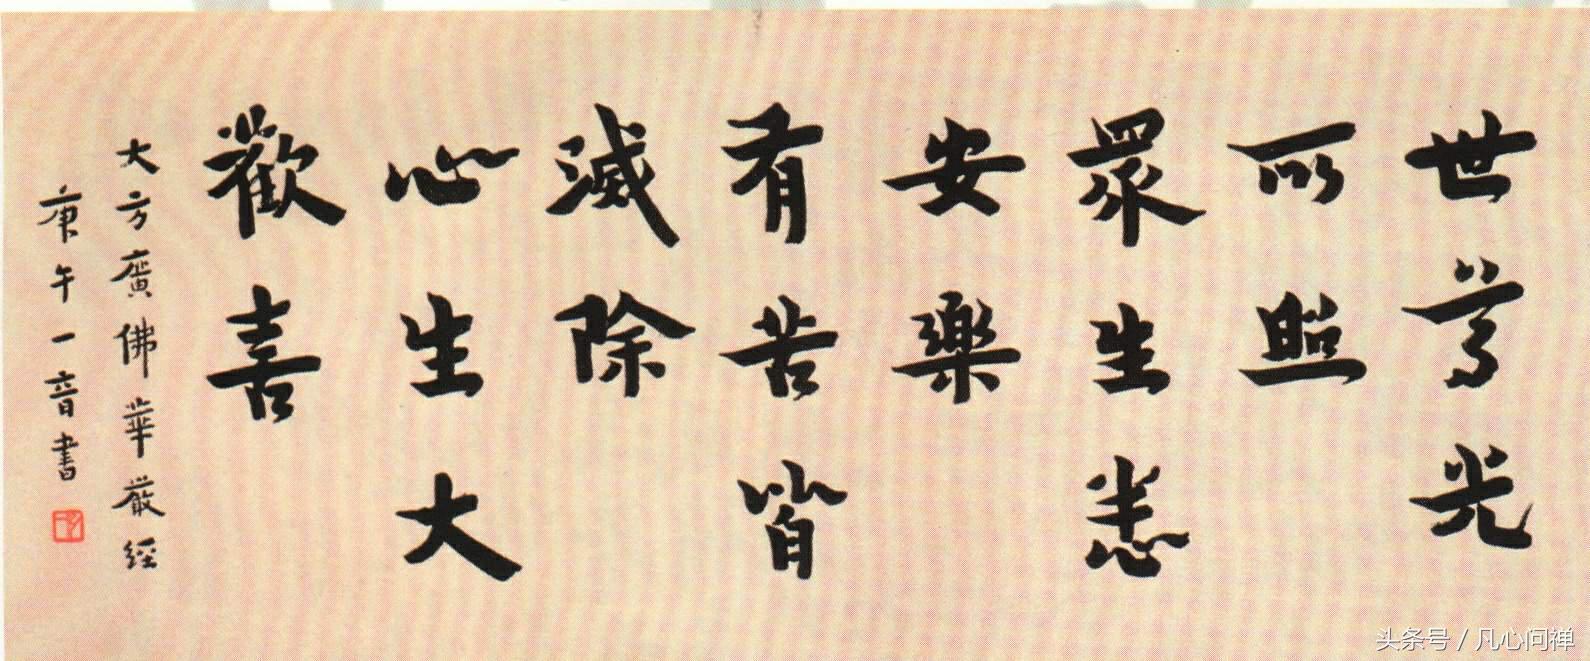 世尊光
所照
眾生悉
安樂
有苦皆
滅除
心生大
歡喜
大方廣佛華嚴經
庚午一音書
头条号 / 凡心问禅